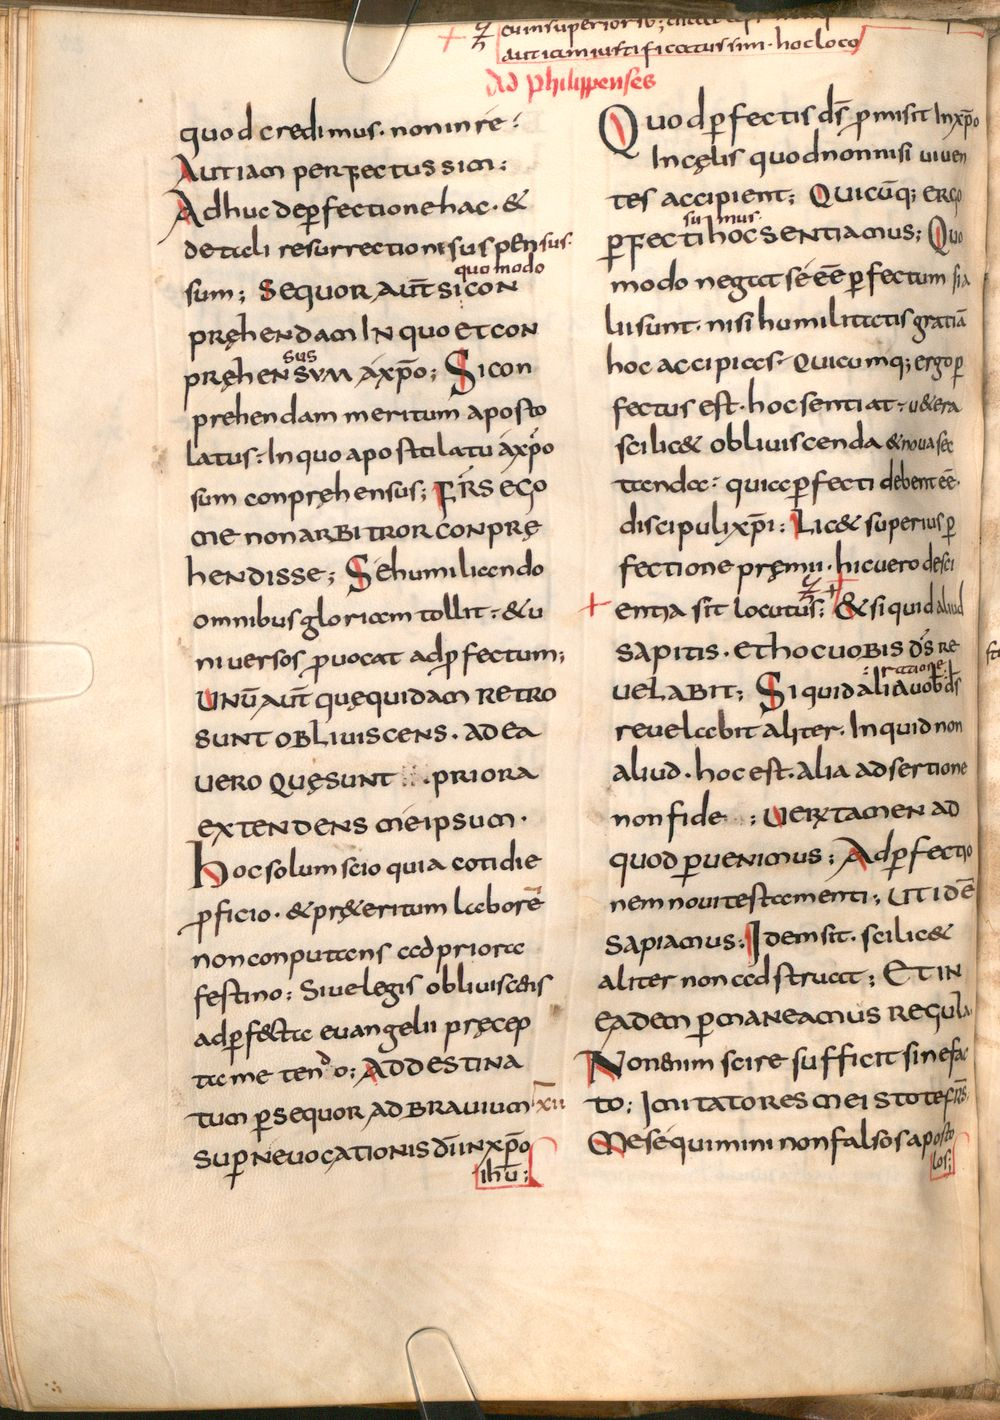 autiamiustificatussim · hocloco
Ad philippenses
quod credimus · noninre :
Autiam perfectus sim :
Adhuc deꝑfectione hac · &
detali resurrectione suspensus
quomodo
sum ; Sequor aut̄ si con
pręhendam In quo et con
sus
pręhensum áxp̄o ; Si con
prehendam meritum aposto
latus : In quo apostilatu áxp̄o
sum conpręhensus ; Fr̄s ego
me non arbitror conprę
hendisse ; Sehumiliando
omnibus gloriam tollit : & u
niuersos ꝓuocat adꝑfectum ;
Unū aut̄ quęquidam retro
sunt obliuiscens · ad ea
uero quęsunt priora
extendens meipsum ·
Hoc solum scio quia cotidie
ꝓficio · & pr&eritum laborē
nonconputans adpriora
festino : Siuelegis obliuiscens
adꝑfecta euangelii pręcep
ta me tendo : Addestina
tum ꝑsequor ad brauium xii
supernę uocationis dī inxp̄o
ihū ;
Quod ꝑfectis dś ꝓmisit Inxp̄o
Incęlis quodnonnisi uiuen
tes accipient ; Quicūq; ergo
sumus ·
ꝑfecti hoc sentiamus ; Quo
modo negat sé eē ꝑfectum si a
lii sunt · nisi humilitatis gratiā
hoc accipias · Quicumq; ergo ꝑ
fectus est · hoc sentiat : u&era
scilic& obliuiscenda & noua sec
tanda : quia ꝑfecti debent eē ·
discipuli xp̄i : Lic& superius ꝑ
fectione pręmii · hicuero desci
entia sit locutus ; & si quid aliud
sapitis · ethocuobis dś re
ratione ·
uelabit ; Si quid alia uob dś
reuelabit aliter · Inquid non
aliud · hoc est · alia adsertione
non fide : Uerutamen ad
quod ꝑuenimus ; Adꝑfectio
nem noui testamenti ; Ut idē
sapiamus : Idem sit · scilic&
aliter non adstruat ; Et in
eadem ꝑmaneamus regula
Non enim scire sufficit sine fac
to : Imitatores mei stote fr̄s ·
Mesequimini nonfalsos aposto
los ;